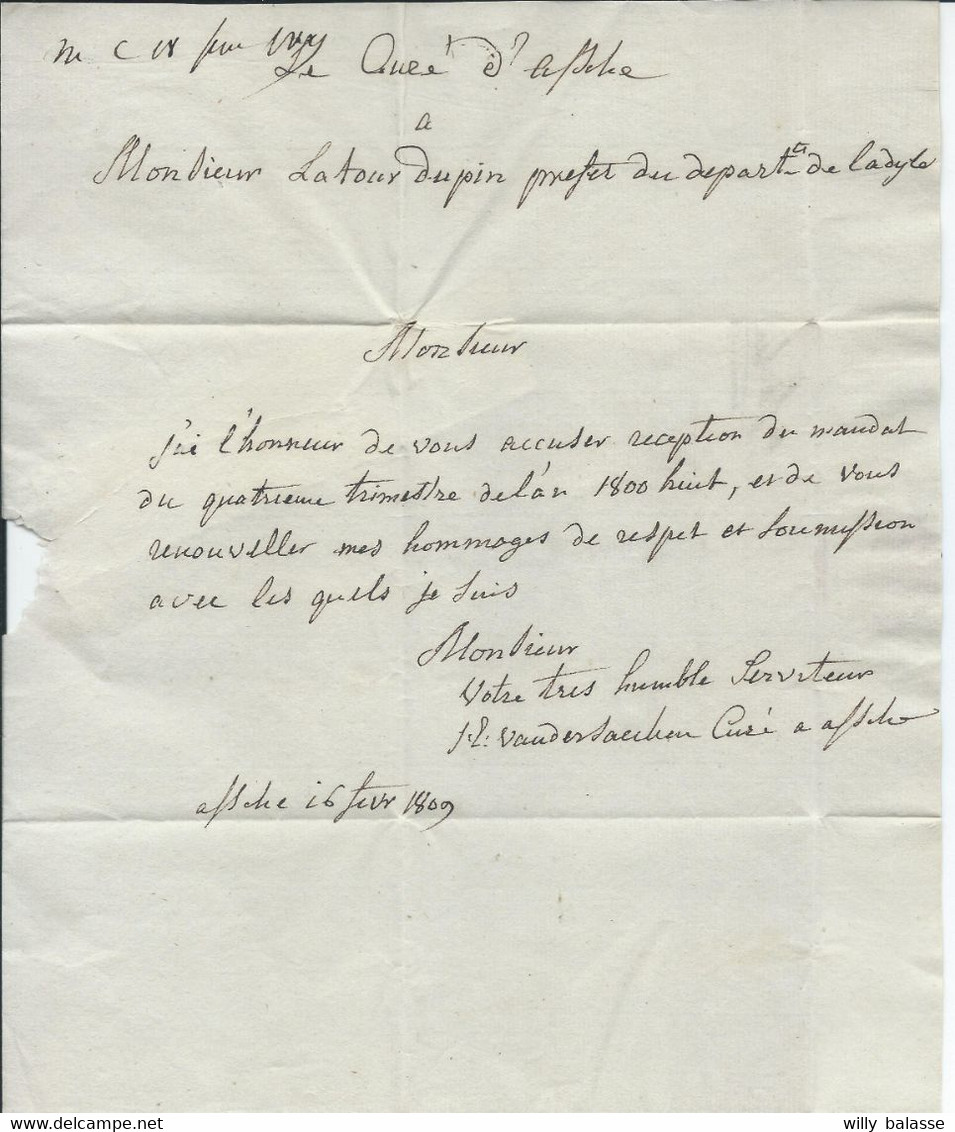 Le Curé d'Assche
a
Monsieur Latour dupin prefet du departt. de ladyle
Monsieur
J'ai l'honneur de vous accuser reception du mandat
du quatrieme trimestre de l'an 1800 huit, et de vous
renouveller mes hommages de respet et soumission
avec les quels je suis
Monsieur
Votre tres humble Serviteur
Curé a assche
assche 16 fevr 1809
willy balasse